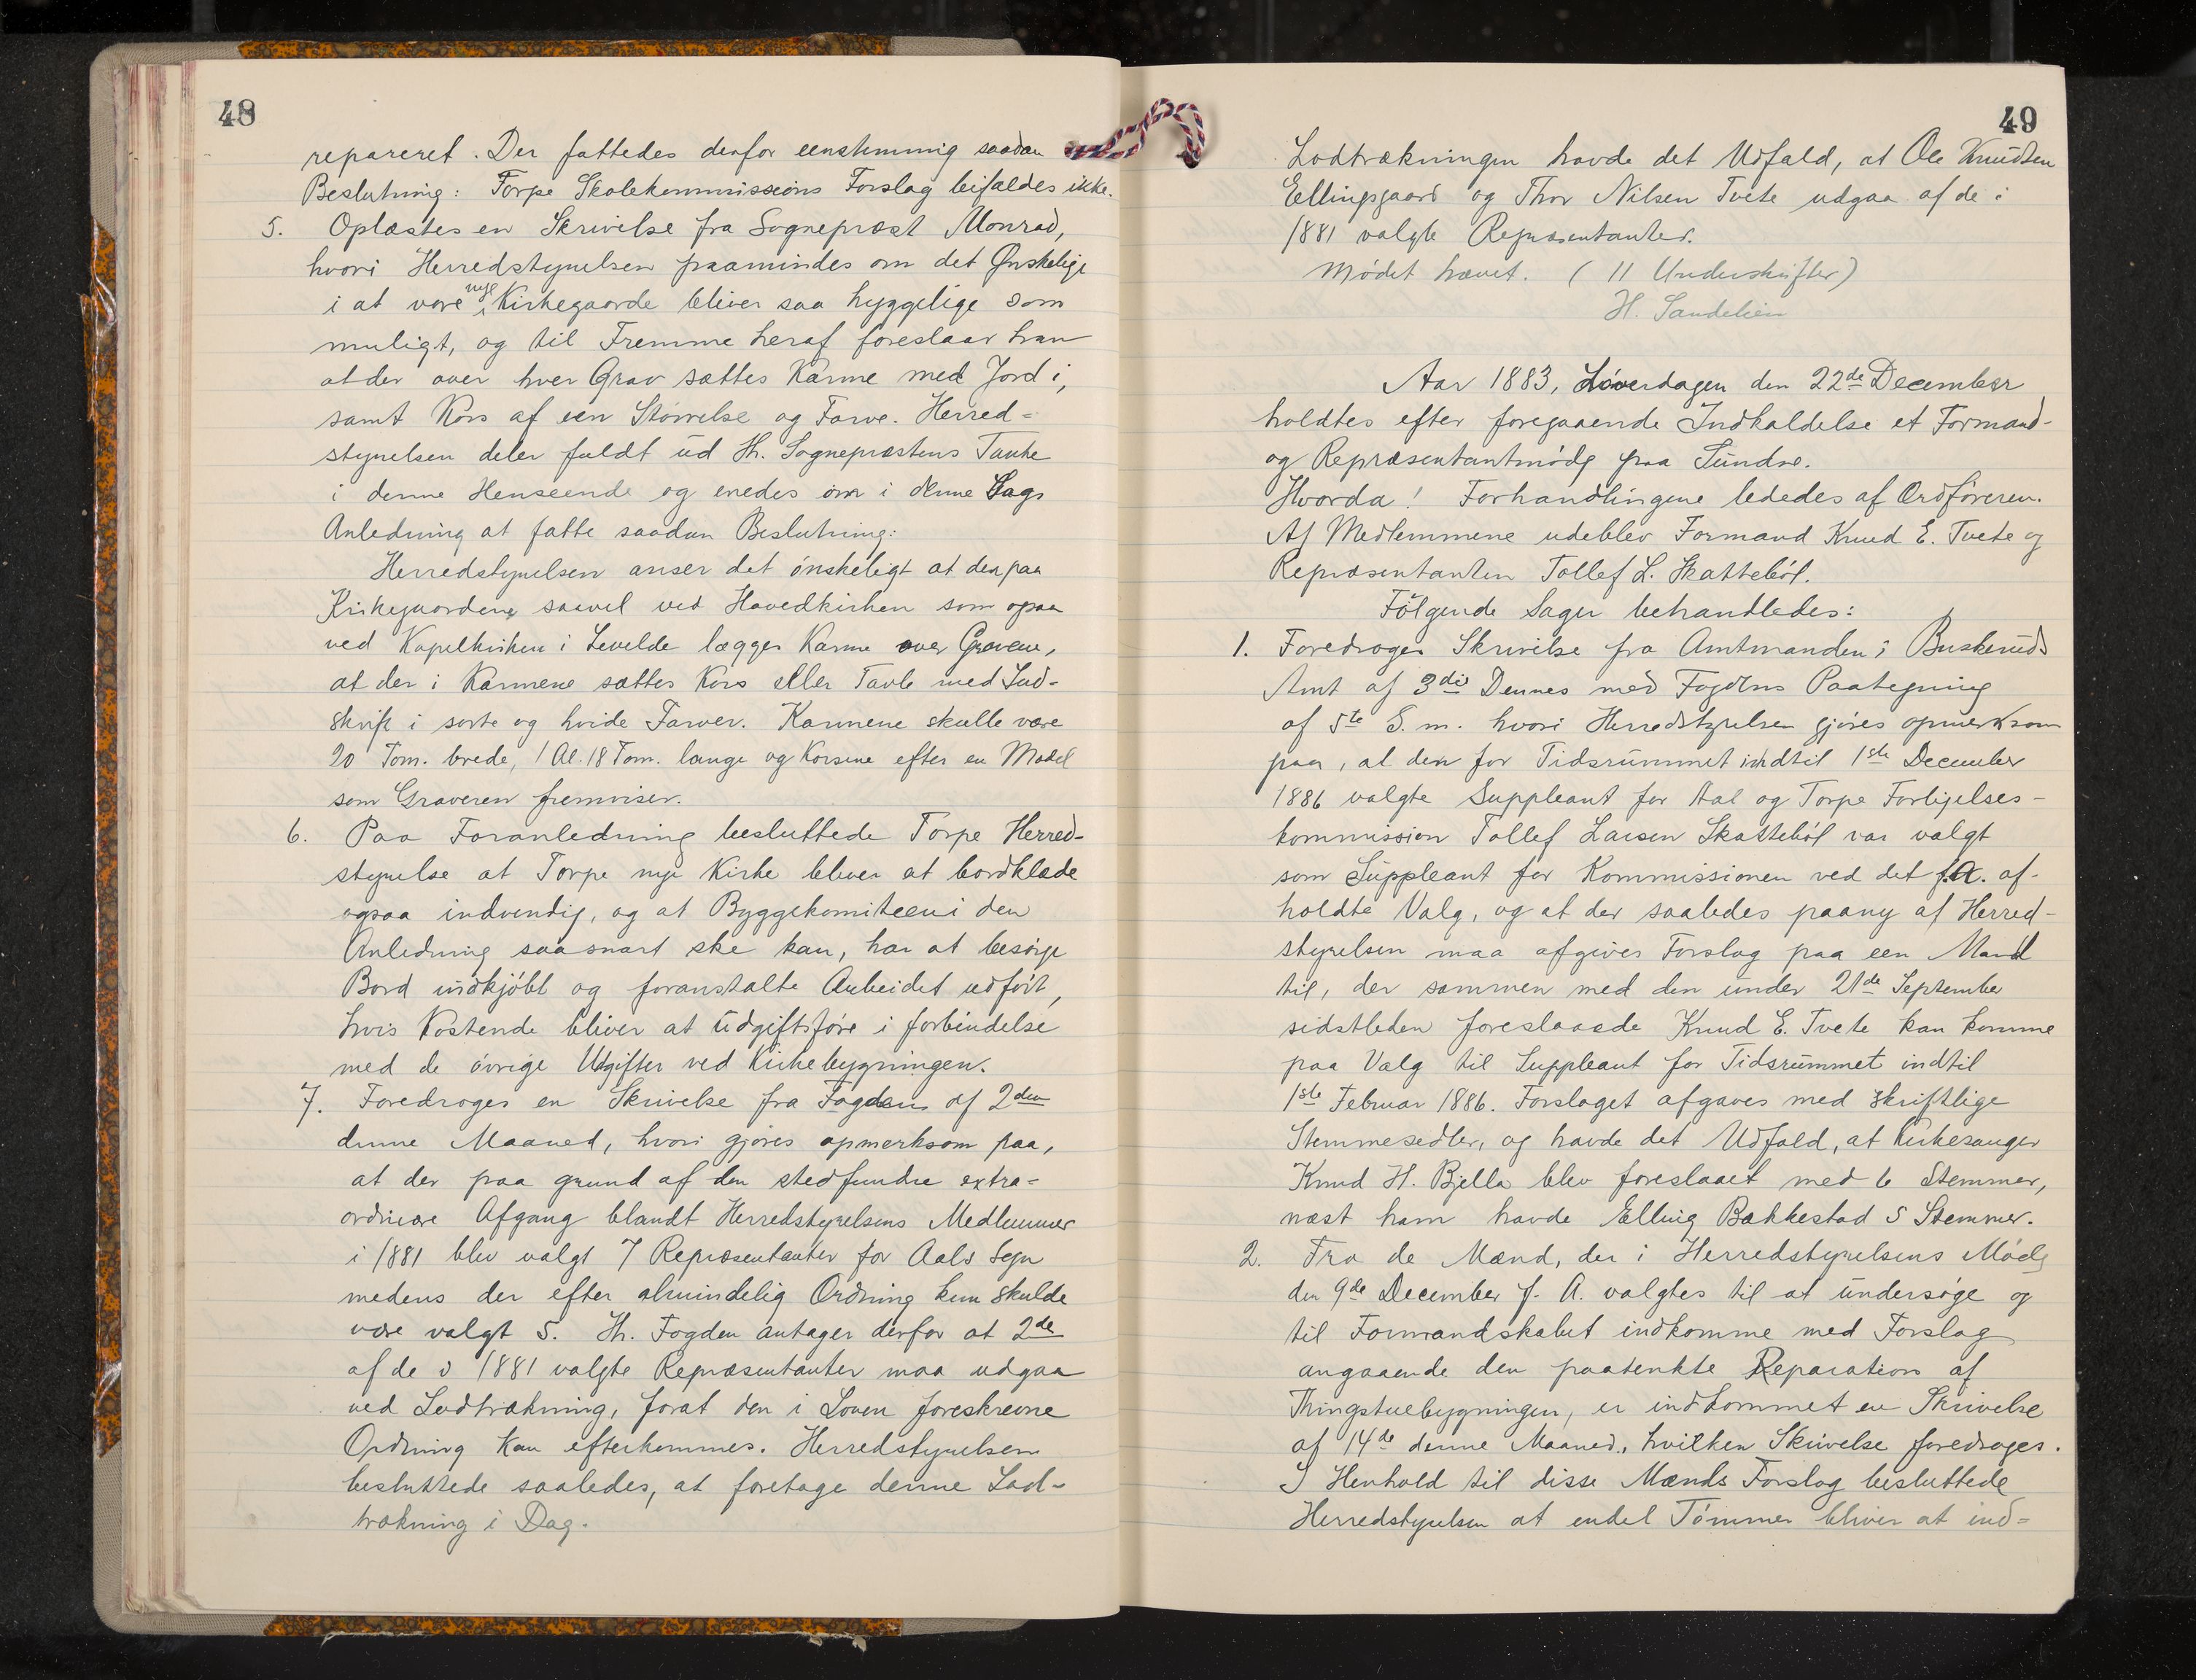 48
repareret. Der fattedes derfor eenstemmig saadan
Beslutning: Torpe Skolekommissions Forslag bifaldes ikke.
5. Oplæstes en Skrivelse fra Sogneprest Monrad,
hvori Herredstyrelsen paamindes om det Ønskelige
i at vore nye Kirkegaarde bliver saa hyggelige som
muligt, og til Fremme heraf foreslaar han
at der over hver Grav sættes Karme med Jord i,
samt Kors af een Størrelse og Farve. Herred=
styrelsen deler fuldt ud Hr. Sogneprestens Tanke
i denne Henseende og enedes om i denne Sags
Anledning at fatte saadan Beslutning:
Herredstyrelsen anser det ønskeligt at der paa
Kirkegaardene saavel ved Hovedkirken som opaa
ved Kapelkirken i Levelde lægges Karme over Gravene,
at der i Karmene sættes Kors eller Tavle med Ind-
skrift i sorte og hvide Farver. Karmene skulle være
20 Tom. brede, 1 Al. 18 Tom. lange og Korsene efter en Model
som Graveren fremviser.
6. Paa Foranledning besluttede Torpe Herred-
styrelse at Torpe nye Kirke bliver at bordklæde
ogsaa indvendig, og at Byggekomiteen i den
Anledning saasnart ske kan, har at besørge
Bord indkjøbt og foranstalte Arbeidet udført,
hvis Kostende bliver at udgiftsføre i forbindelse
med de øvrige Udgifter ved Kirkebygningen.
7. Foredroges en Skrivelse fra Fogden af 2den
denne Maaned, hvori gjøres opmerksom paa,
at der paa grund af den stedfundne extra-
ordinære Afgang blandt Herredstyrelsens Medlemmer
i 1881 blev valgt 7 Repræsentanter for Aals Sogn
medens der efter almindelig Ordning kun skulde
være valgt 5. Hr. Fogden antager derfor at 2de
af de i 1881 valgte Repræsentanter maa udgaa
ved Lodtrækning, forat den i Loven foreskrevne
Ordning kan efterkommes. Herredstyrelsen
besluttede saaledes, at foretage denne Lod-
trækning i Dag.
49
Lodtrækningen havde det Udfald, at Ole Knudsen
Ellingsgaard og Thor Nilsen Tvete udgaa af de i
1881 valgte Repræsentanter.
Mødet hævet. (11 Underskrifter)
H. Sandelien
Aar 1883, Løverdagen den 22de December
holdtes efter foregaaende Indkaldelse et Formand-
og Repræsentantmøde paa Sundre.
Hvorda! Forhandlingene lededes af Ordføreren.
Af Medlemmene udeblev Formand Knud E. Tvete og
Repræsentanten Tollef L. Skattebøl.
Følgende Sager behandledes:
1. Foredroges Skrivelse fra Amtmanden i Buskeruds
Amt af 3die Dennes med Fogdens Paategning
af 5te S. m. hvori Herredstyrelsen gjøres opmerksom
paa, at den for Tidsrummet indtil 1ste December
1886 valgte Suppleant for Aal og Torpe Forligelses-
kommission Tollef Larsen Skattebøl var valgt
som Suppleant for Kommissionen ved det f.A. af-
holdte Valg, og at der saaledes paany af Herred-
styrelsen maa afgives Forslag paa een Mand
til, der sammen med den under 21de September
sidstleden foreslaaede Knud E. Tvete kan komme
paa Valg til Suppleant for Tidsrummet indtil
1ste Februar 1886. Forslaget afgaves med skriftlige
Stemmesedler, og havde det Udfald, at Kirkesanger
Knud H. Bjella blev foreslaaet med 6 Stemmer,
næst ham havde Elling Bakkestad 5 Stemmer.
2. Fra de Mænd, der i Herredstyrelsens Møde
den 9de December f. A. valgtes til at undersøge og
til Formandskabet indkomme med Forslag
angaaende den paatenkte Reparation af
Thingstuebygningen, er indkommet en Skrivelse
af 14de denne Maaned, hvilken Skrivelse foredroges.
I Henhold til disse Mænds Forslag besluttede
Herredstyrelsen at endel Tømmer bliver at ind=